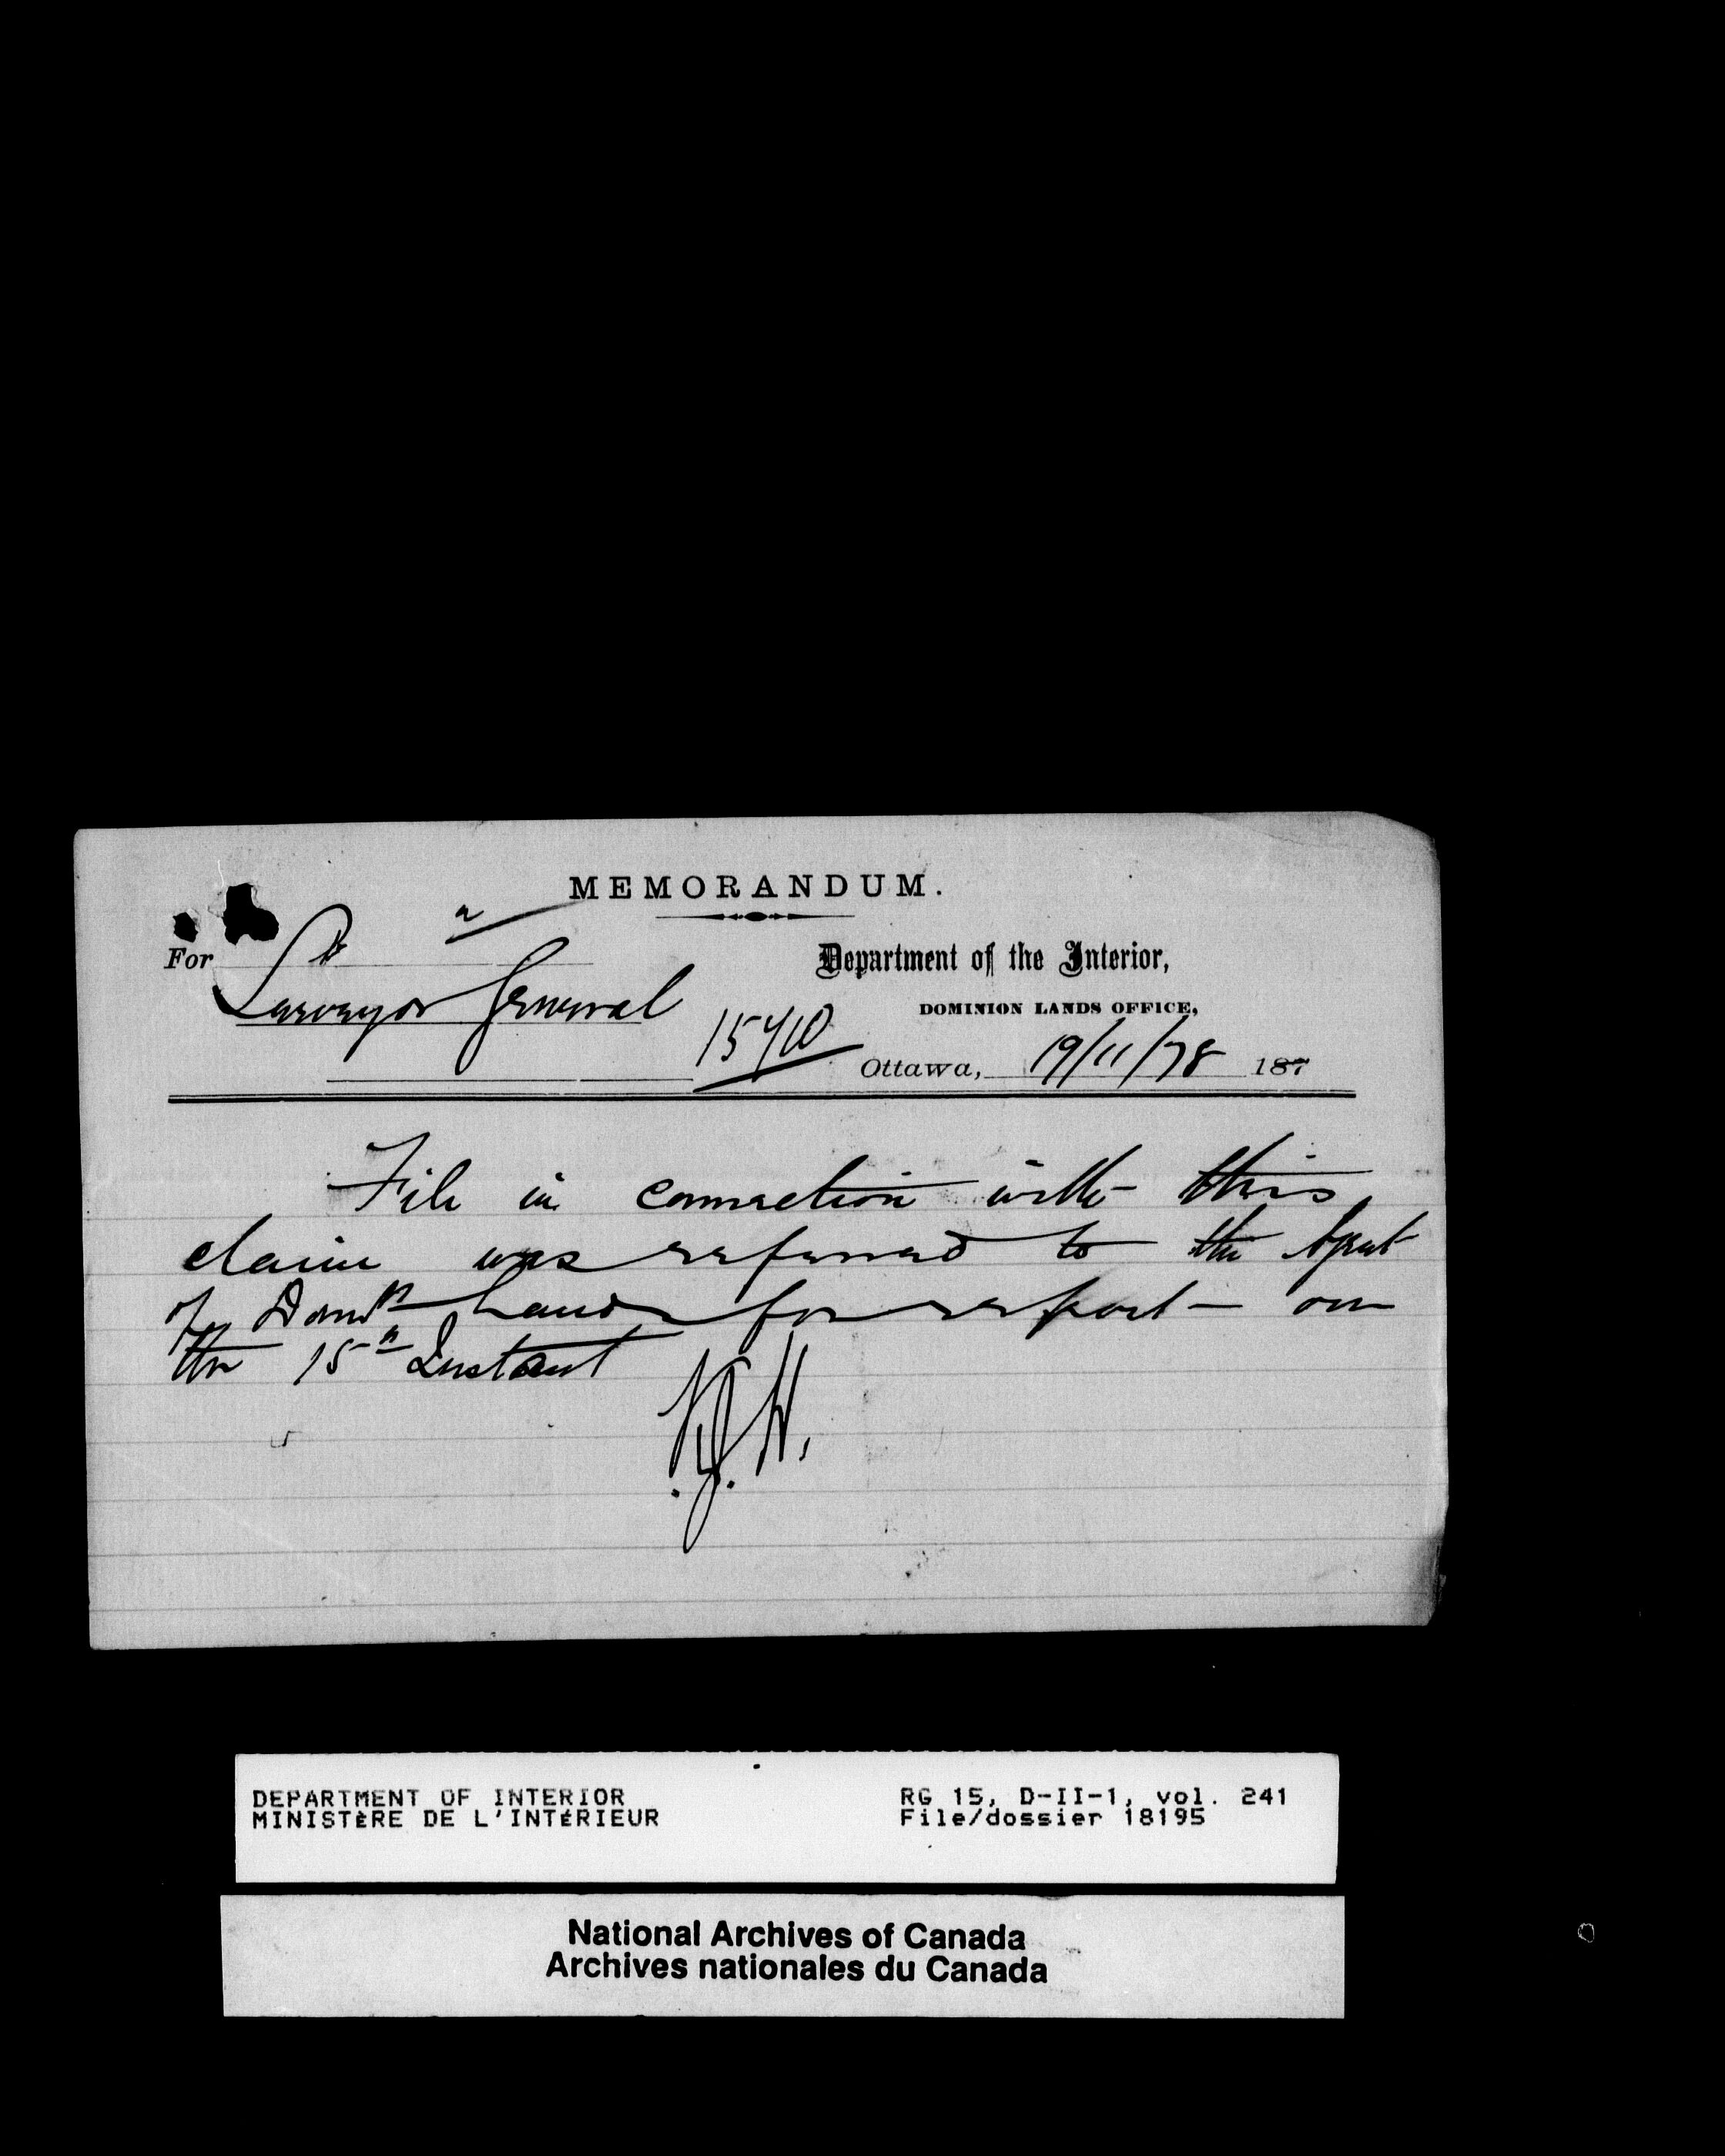 MEMORANDUM.
For
Surveyor General
Department of the Interior,
DOMINION LANDS OFFICE,
Ottawa, 19/11/78 187
File in connection with this
claim was referred to the Agent
of Domn Lands for report on
the 15th Instant
DEPARTMENT OF INTERIOR
MINISTÈRE DE L'INTÉRIEUR
RG 15, D-II-1, vol. 241
File/dossier 18195
National Archives of Canada
Archives nationales du Canada